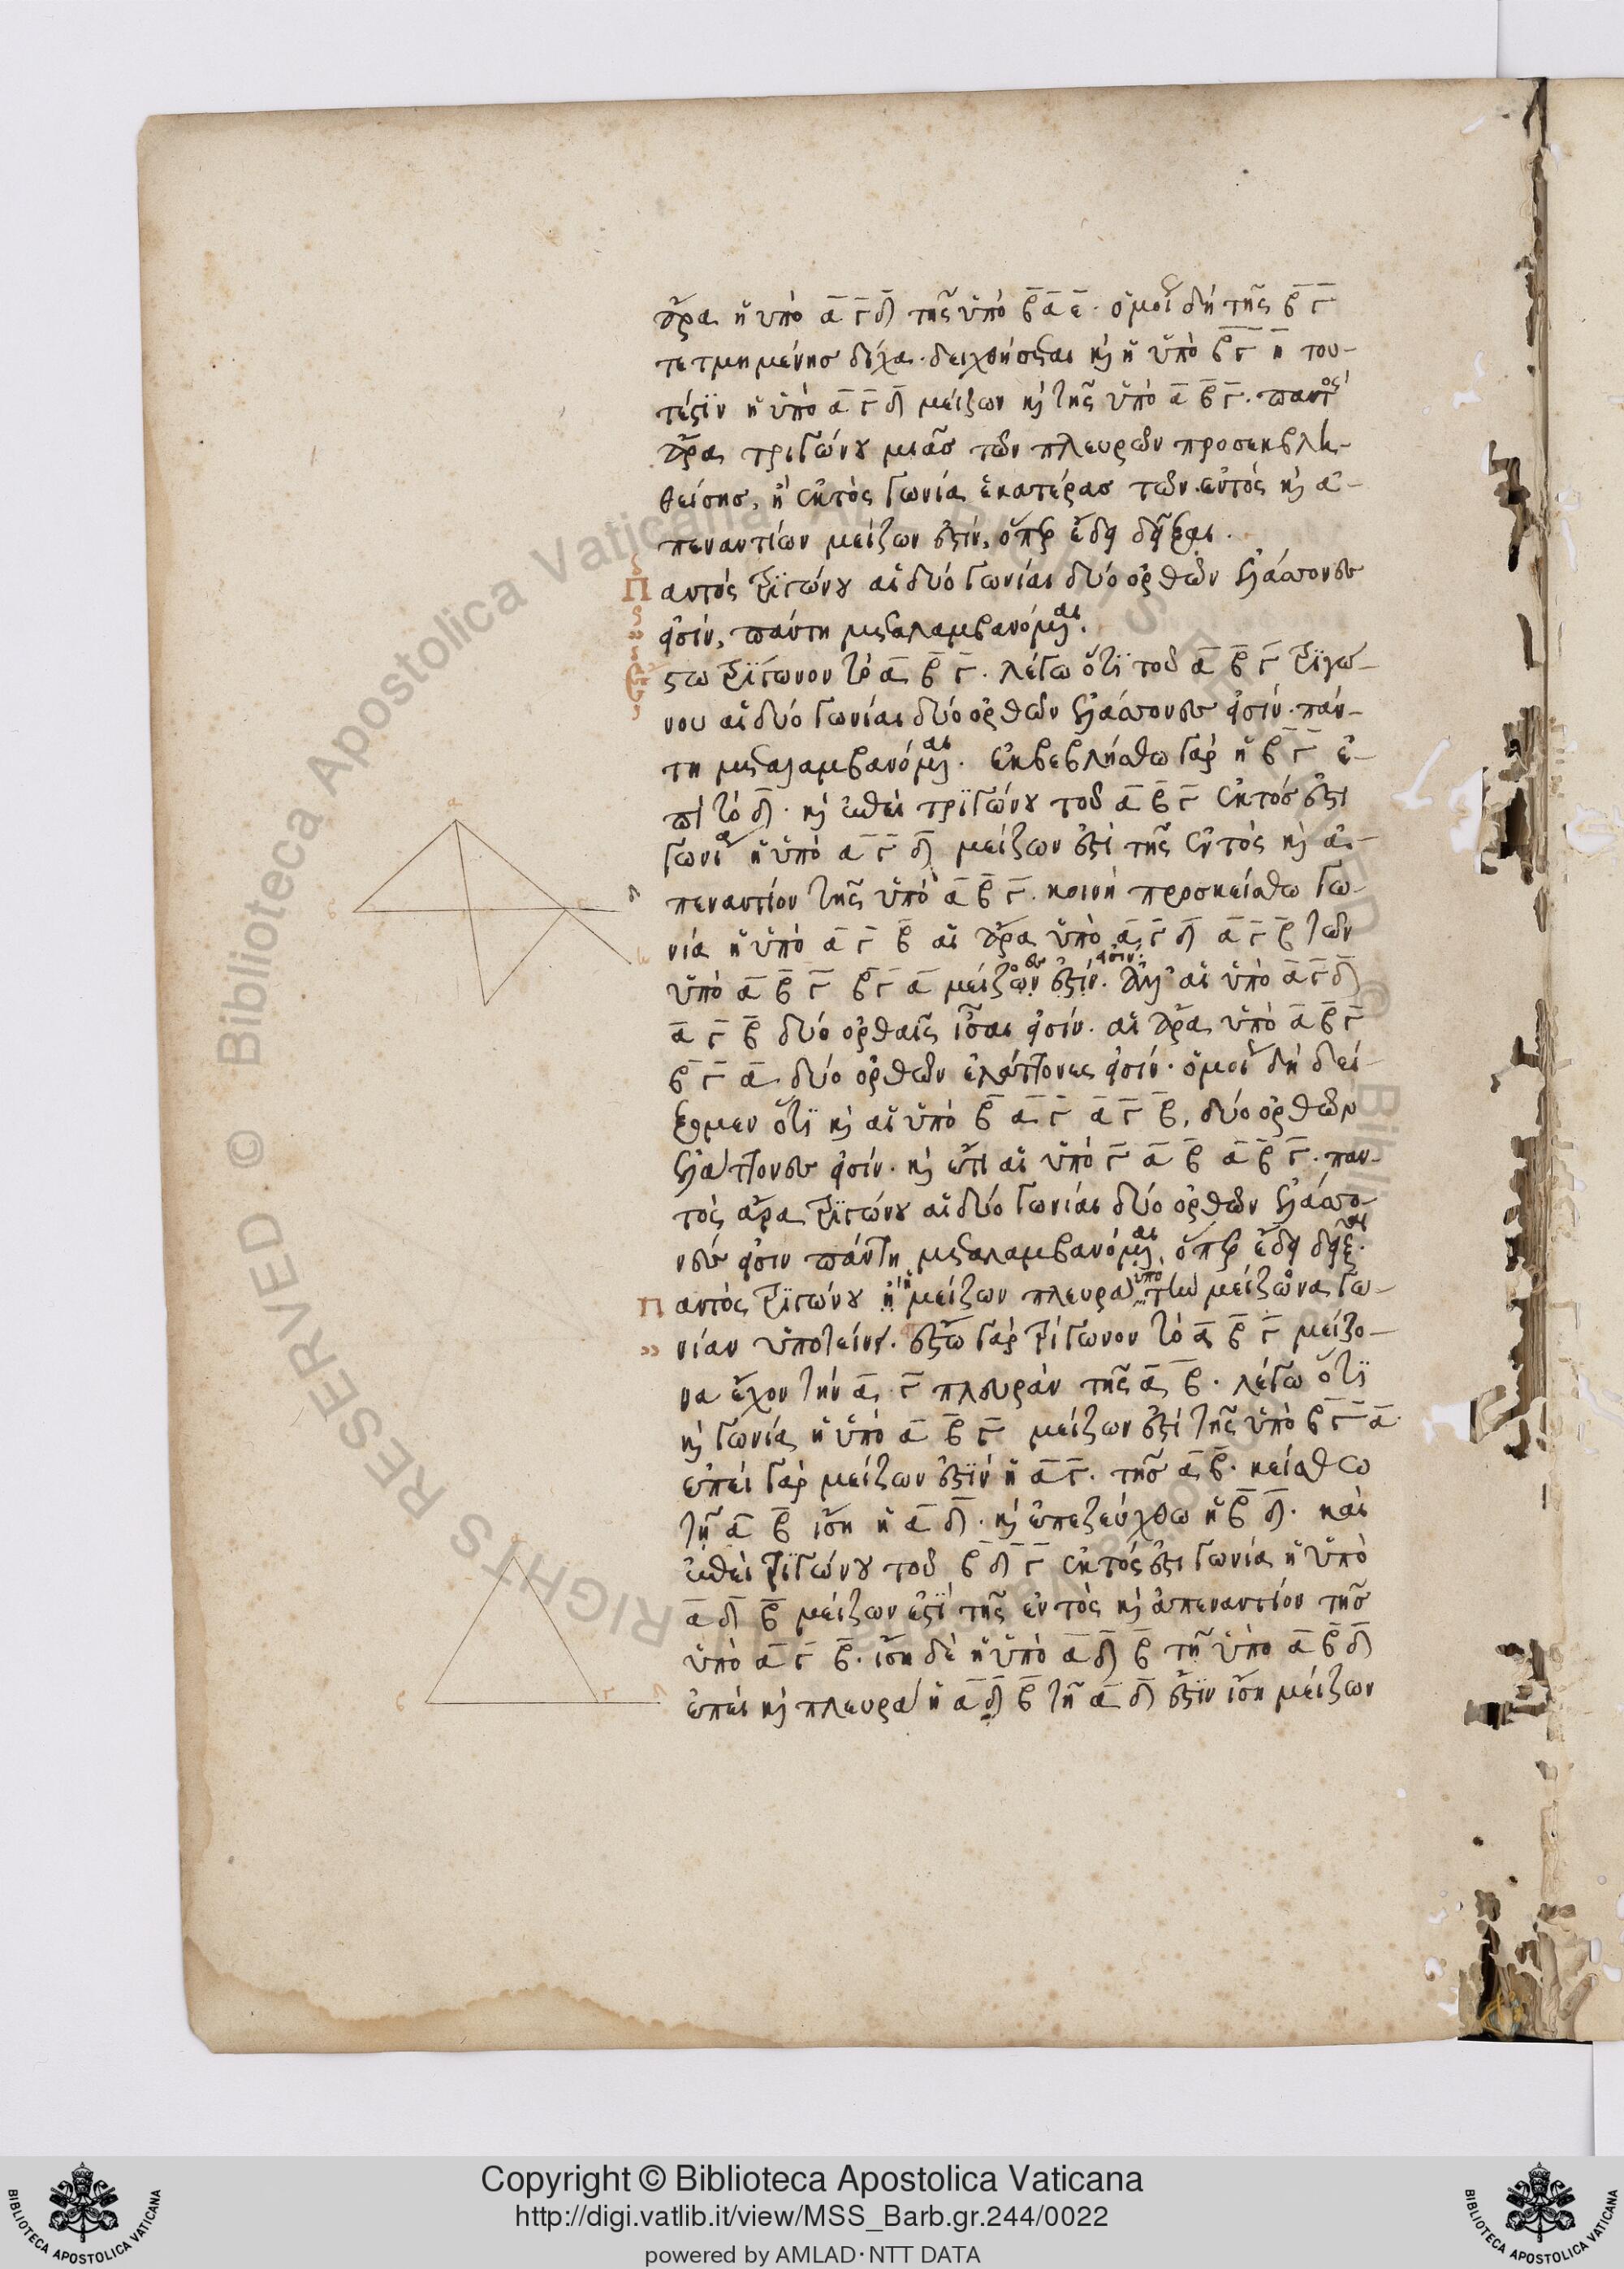 ἄρα ἡ ὑπὸ α̅ γ̅ δ̅ τῆς ὑπὸ β̅ α̅ ε̅· ὁμοί δὴ τῆς β̅ γ̅
τετμημένης δίχα· δειχθήσεται κὶ ἡ ὑπὸ β̅ γ̅ η̅ του-
τέστϊν ἡ ὑπὸ α̅ γ̅ δ̅ μείζων κὶ τῆς ὑπὸ α̅ β̅ γ̅. παντὸς
ἄρα τριγώνου μιᾶς τῶν πλευρῶν προσεκβλη-
θείσης, ἡ ἐκτὸς γωνία ἑκατέρας τῶν ἐντὸς κὶ ἀ-
πεναντίων μείζων ἐστίν, ὅπερ ἔδει δεῖξαι.
Παντὸς τρϊγώνου αἱ δύο γωνίαι δύο ὀρθῶν ἐλάσσονες
εἰσίν, πάντη μεταλαμβανόμεναι.
Ἔστω τρϊγωνον τὸ α̅ β̅ γ̅. λέγω ὅτϊ τοῦ α̅ β̅ γ̅ τρϊγώ-
νου αἱ δύο γωνίαι δύο ὀρθῶν ἐλάσσονες εἰσίν· πάν-
τη μεταλαμβανόμεναι. ἐκβεβλήσθω γὰρ ἡ β̅ γ̅ ἐ-
πὶ τὸ δ̅. κὶ ἐπεὶ τρϊγώνου τοῦ α̅ β̅ γ̅ ἐκτός ἐστι
γωνία ἡ ὑπὸ α̅ γ̅ δ̅ μείζων ἐστὶ τῆς ἐντὸς κὶ ἀ-
πεναντίον τῆς ὑπὸ α̅ β̅ γ̅. κοινὴ προσκείσθω γω-
νία ἡ ὑπὸ α̅ γ̅ β̅ αἱ ἄρα ὑπὸ α̅ γ̅ δ̅ α̅ γ̅ β̅ τῶν
ὑπὸ α̅ β̅ γ̅ β̅ γ̅ α̅ μείζονες εἰσίν. ἀλλ' αἱ ὑπὸ α̅ γ̅ δ̅
α̅ γ̅ β̅ δύο ὀρθαῖς ἴσαι εἰσίν. αἱ ἄρα ὑπὸ α̅ β̅ γ̅
β̅ γ̅ α̅ δύο ὀρθῶν ἐλάττονες εἰσίν· ὁμοί δὴ δεί-
ξομεν ὅτϊ κὶ αἱ ὑπὸ β̅ α̅ γ̅ α̅ γ̅ β̅, δύο ὀρθῶν
ἐλάττονες εἰσίν. κὶ ἔτι αἱ ὑπὸ γ̅ α̅ β̅ α̅ β̅ γ̅. παν-
τὸς ἄρα τρϊγώνου αἱ δύο γωνίαι δύο ὀρθῶν ἐλάσσο-
νες εἰσιν πάντη μεταλαμβανόμεναι, ὅπερ ἔδει δεῖξαι.
Παντὸς τρϊγώνου ἡ μείζων πλευρὰ ὑπὸ τὴν μείζονα γω-
νίαν ὑποτείνει. ἔστω γὰρ τρίγωνον τὸ α̅ β̅ γ̅ μείζο-
να ἔχον τὴν α̅ γ̅ πλευρὰν τῆς α̅ β̅. λέγω ὅτϊ
κὶ γωνία ἡ ὑπὸ α̅ β̅ γ̅ μείζων ἐστὶ τῆς ὑπὸ β̅ γ̅ α̅.
ἐπεὶ γὰρ μείζων ἐστϊν ἡ α̅ γ̅. τῆς α̅ β̅. κείσθω
τῇ α̅ β̅ ἴση ἡ α̅ δ̅. κὶ ἐπεζεύχθω ἡ β̅ δ̅. καὶ
ἐπεὶ τρϊγώνου τοῦ β̅ δ̅ γ̅ ἐκτός ἐστι γωνία ἡ ὑπὸ
α̅ δ̅ β̅ μείζων ἐστϊ τῆς ἐντὸς κὶ ἀπεναντίον τῆς
ὑπὸ α̅ γ̅ β̅. ἴση δὲ ἡ ὑπὸ α̅ δ̅ β̅ τῇ ὑπο α̅ β̅ δ̅
ἐπεὶ κὶ πλευρὰ ἡ α̅ δ̅ β̅ τῇ α̅ δ̅ ἐστϊν ἴση μείζων
Copyright © Biblioteca Apostolica Vaticana
http://digi.vatlib.it/view/MSS_Barb.gr.244/0022
powered by AMLAD·NTT DATA